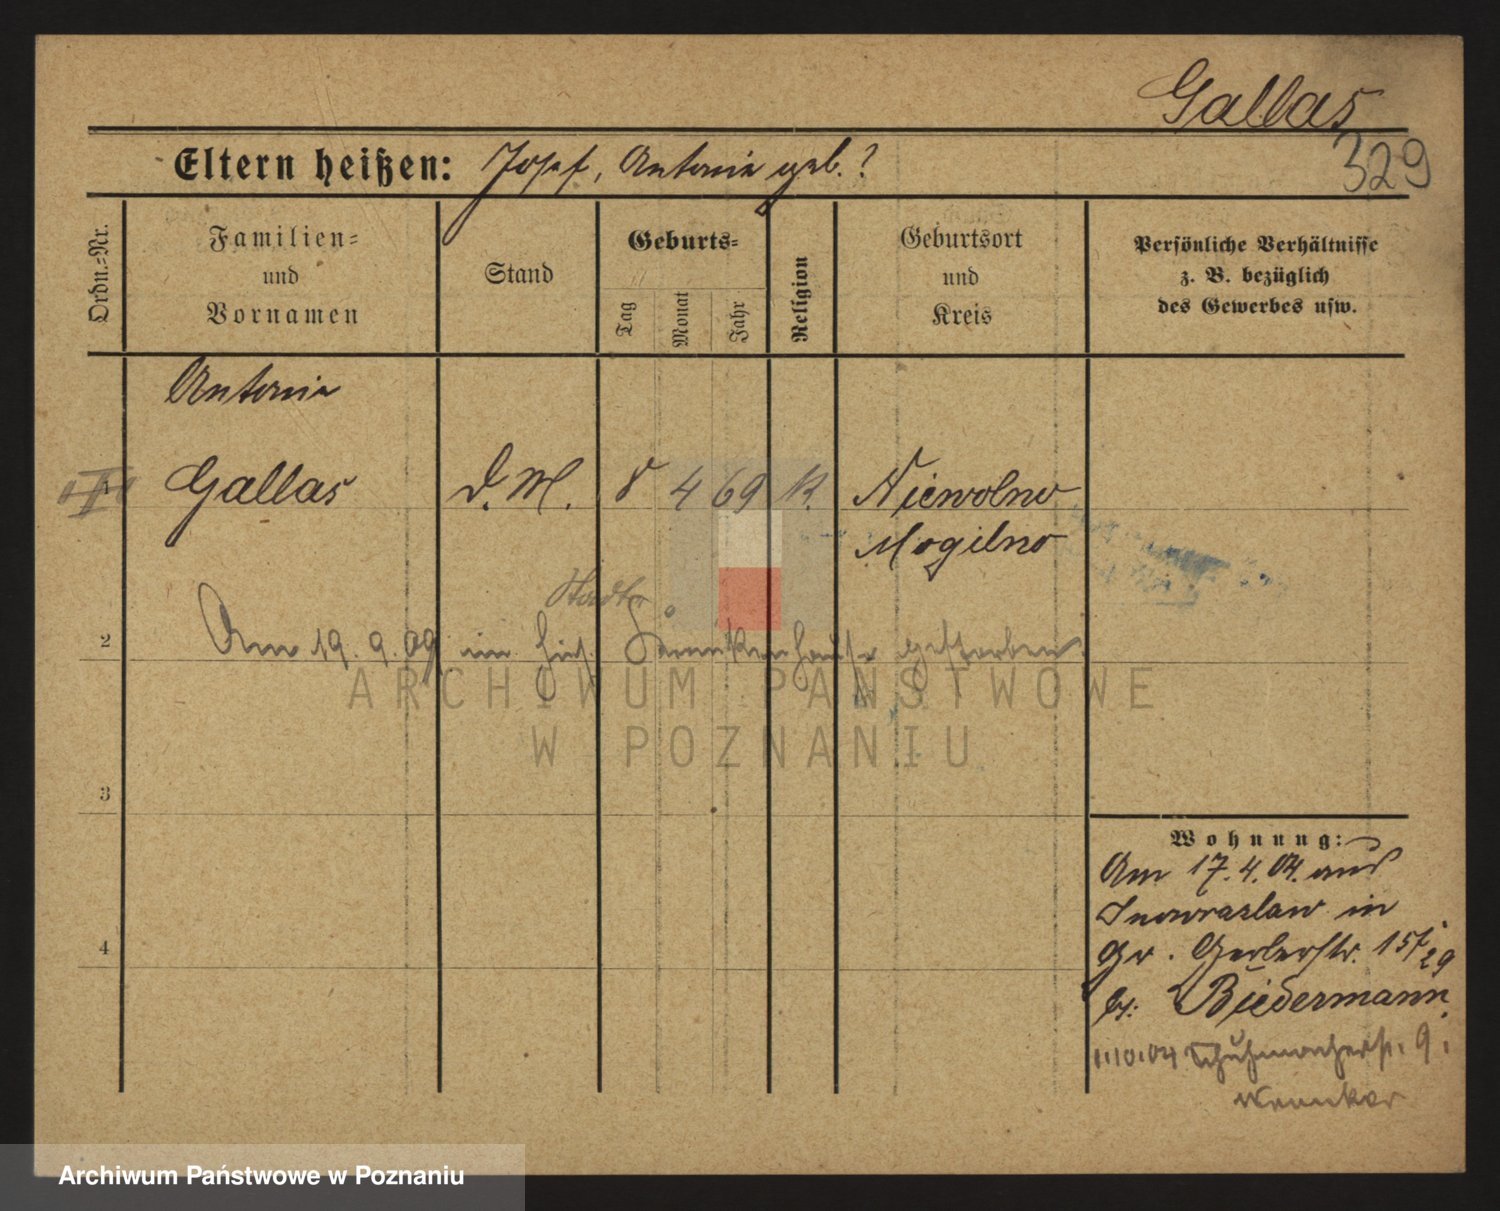 Gallas
329
Eltern heißen: Josef, Antonie geb. ?
Ordn.-Nr.
Familien=
und
Vornamen
Stand
Geburts=
Tag
Monat
Jahr
Religion
Geburtsort
und
Kreis
Persönliche Verhältnisse
z. B. bezüglich
des Gewerbes usw.
Antonie
1
Gallas D. M. 8 4 69 K. Niewolno
Mogilno
Stadt
2
Am 19. 9. 09 im hies. Krankenhause gestorben.
ARCHIWUM PAŃSTWOWE
W POZNANIU
3
4
Wohnung:
Am 17.4.04. aus
Inowrazlaw in
Gr. Gerberstr. 29
bei Biedermann.
1.10.04 Schuhmacherstr. 9.
Archiwum Państwowe w Poznaniu